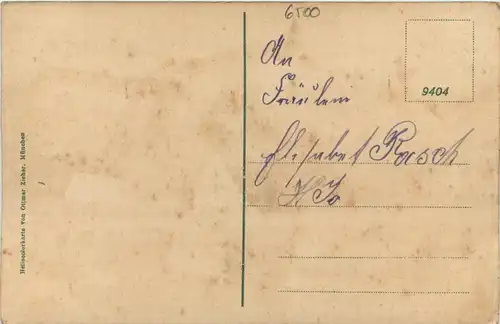 6500
An
Fräulein
Elisabet Rasch
9404
Heliocolorkarte von Ottmar Zieher, München